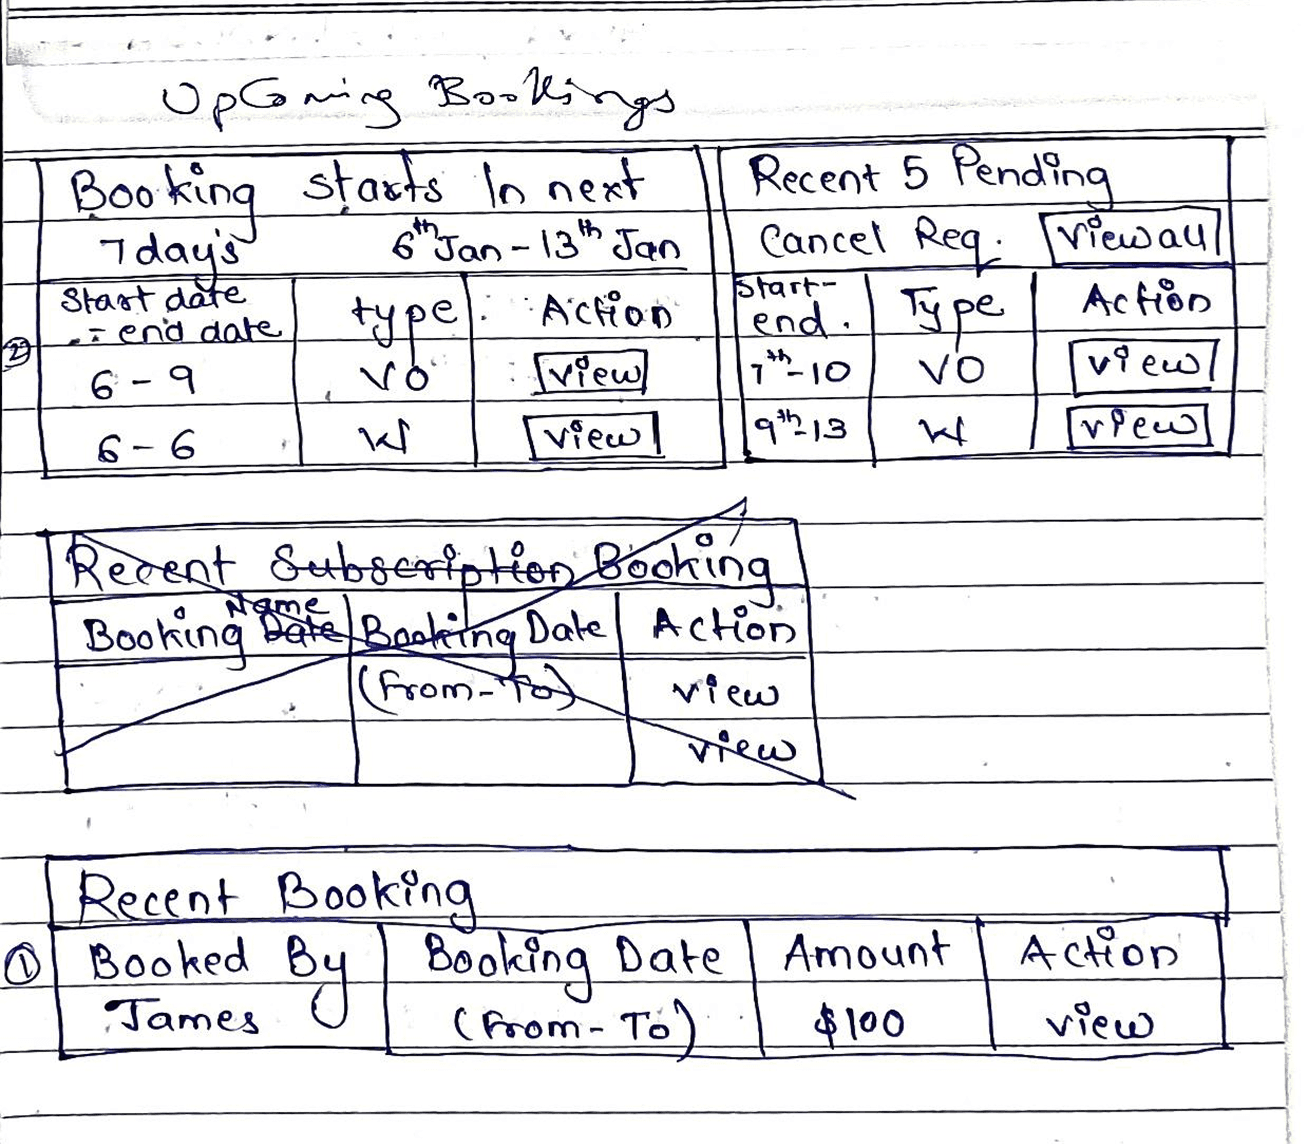 Upcoming Bookings
Booking starts In next
7 day's 6th Jan - 13th Jan
Start date - end date type Action
6 - 9 VO view
6 - 6 W view
Recent 5 Pending
Cancel Req. view all
Start- end. Type Action
7th-10 VO view
9th-13 W view
②
Recent Subscription Booking
Booking Date Name Booking Date Action
(From-To) view
view
Recent Booking
① Booked By Booking Date Amount Action
James (From-To) $100 view